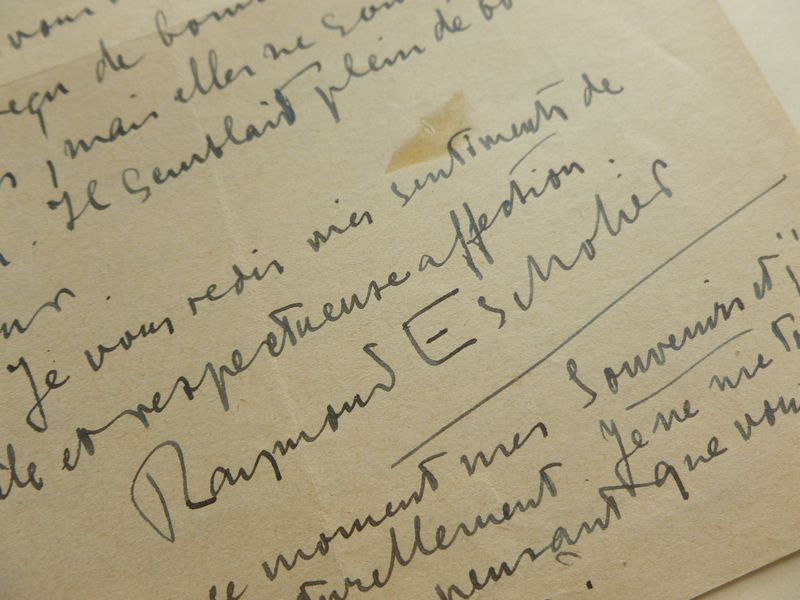 vous
de
, mais elles ne sont
. Il semblait plein de bo
Je vous redis mes sentiments de
et respectueuse affection.
Raymond Escholier
ce moment mes souvenirs et j'
turellement. Je ne me t
pensant que vous